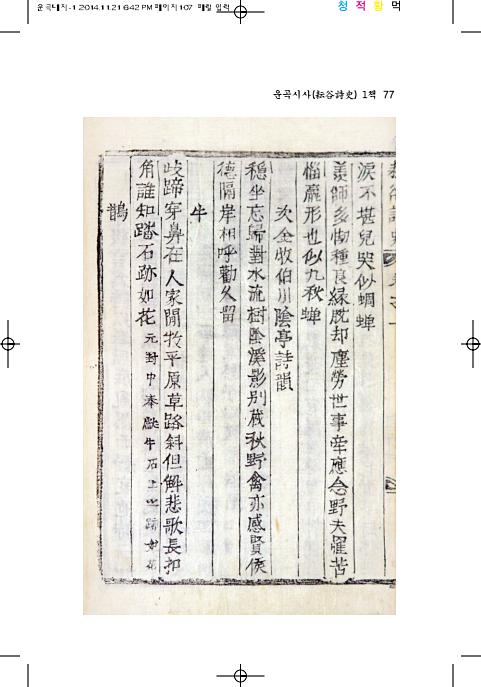 운곡대지-1 2014.11.21 6:42 PM 페이지107 매일 입력
청 적 황 먹
운곡시사(耘谷詩史) 1책 77
淚不甚兒哭似蜩蟬
羨師多忉種良緣脫却塵勞世事牽應念野夫罹苦
惱羸形也似九秋蟬
次金牧伯川陰亭詩韻
穩坐忘歸對水流樹陰溪影別藏秋野禽亦感賢侯
德隔岸相呼勸久留
牛
岐蹄穿鼻在人家閒牧平原草路斜但解悲歌長扣
角誰知踏石跡如花
元對中奉獻牛石上之跡如花
鵲